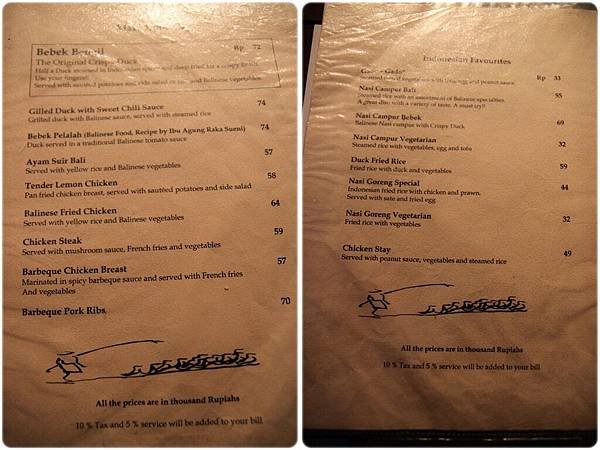 Bebek Bengil Rp 72
The Original Crispy Duck
Half a Duck steamed in Indonesian spices and deep fried for a crispy finish.
Use your fingers!
Served with sauteed potatoes and side salad or rice and Balinese vegetables
Gilled Duck with Sweet Chili Sauce 74
Grilled duck with Balinese sauce, served with steamed rice
Bebek Pelalah (Balinese Food, Recipe by Ibu Agung Raka Sueni) 74
Duck served in a traditional Balinese tomato sauce
Ayam Suir Bali 57
Served with yellow rice and Balinese vegetables
Tender Lemon Chicken 58
Pan fried chicken breast, served with sauteed potatoes and side salad
Balinese Fried Chicken 64
Served with yellow rice and Balinese vegetables
Chicken Steak 59
Served with mushroom sauce, French fries and vegetables
Barbeque Chicken Breast 57
Marinated in spicy barbeque sauce and served with French fries
And vegetables
Barbeque Pork Ribs 70
All the prices are in thousand Rupiahs
10 % Tax and 5 % service will be added to your bill
Indonesian Favourites
Gado - Gado Rp 33
Steamed mixed vegetables with tofu, egg and peanut sauce
Nasi Campur Bali 55
Steamed rice with an assortment of Balinese specialties
A great dish with a variety of taste. A must try!!
Nasi Campur Bebek 69
Balinese Nasi campur with Crispy Duck
Nasi Campur Vegetarian 32
Steamed rice with vegetables, egg and tofu
Duck Fried Rice 59
Fried rice with duck and vegetables
Nasi Goreng Special 44
Indonesian fried rice with chicken and prawn.
Served with sate and fried egg
Nasi Goreng Vegetarian 32
Fried rice with vegetables
Chicken Stay 49
Served with peanut sauce, vegetables and steamed rice
All the prices are in thousand Rupiahs
10 % Tax and 5 % service will be added to your bill